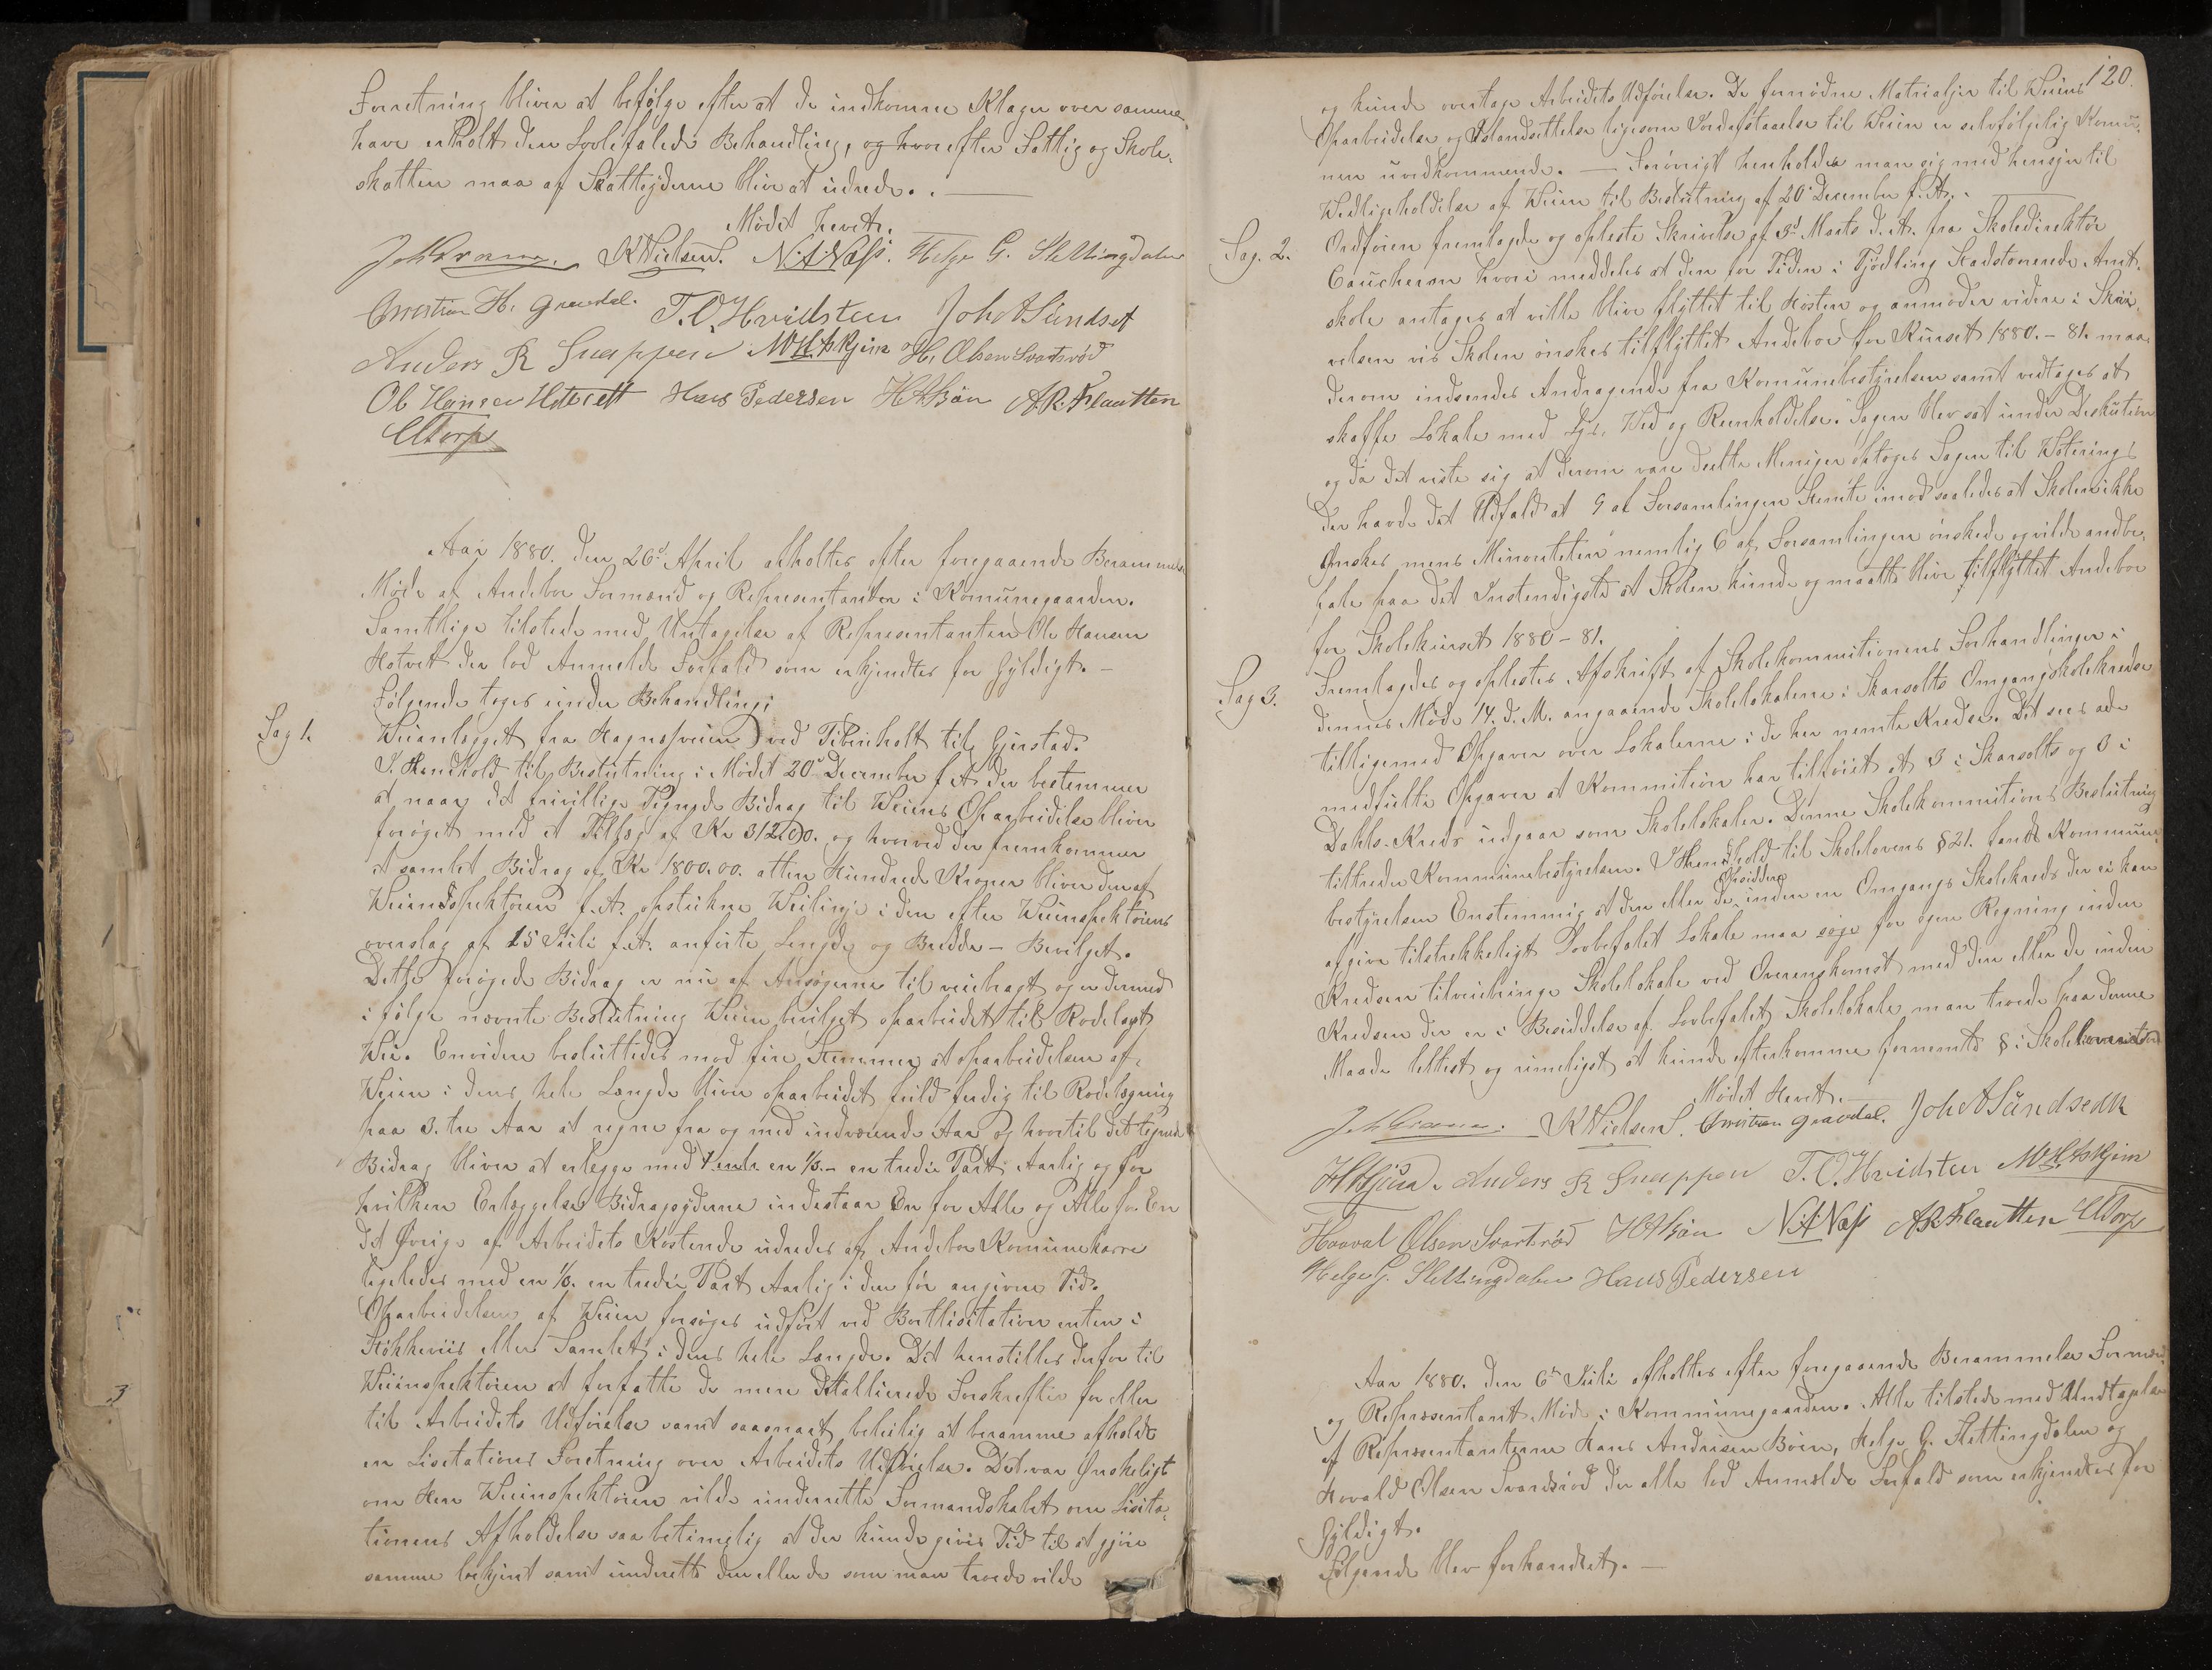 Forretning bliver at befølge efter at de indkomne Klager over samme
have erholdt den Lovbefalede Behandling, og hvorefter Fattig og Skole-
skatten maa af Skatteyderne blive at udrede.
Mødet hævet.
K Nielsen. N. A. Næss. Helge G. Slettingdalen
Christian H. Gravdal. T. O. Hvidsten Joh A Sundset
Anders R Gueppen M H Askjem H. Olsen Svartsrød
Ole Hansen Hotvett Hans Pedersen H A Bøen A. R. Flautten
C Torp
Aar 1880. den 26d April afholtes efter foregaaende Berammelse
Møde af Andebo Formænd og Representanter i Komunegaarden.
Samtlige tilstede med Untagelse af Representanten Ole Hansen
Hotvet der lod Anmelde Forfald som erkjendtes for Gyldigt. -
Følgende toges under Behandling:
Sag 1. Veianlægget fra Hagnesveien ved til Gjerstad.
I Hendhold til Beslutning i Mødet 20de December f. A. der bestemmer
at naar det frivillige Tegnede Bidrag til Veiens Oparbeidelse bliver
forøget med et Tillæg af Kr 312,00. og hvorved der fremkommer
et samlet Bidrag af Kr 1800.00. atten Hundrede Kroner bliver den af
Veiinspektøren f. A. opstukne Veilinje i den efter Veiinspektørens
overslag af 15 Juli f. A. anførte Lengde og Bredde - Bevilget.
Dette forøgede Bidrag er nu af Ansøgerne tilveiebragt og er dermed
i følge nævnte Beslutning Veien bevilget oparbeidet til Rodelagt
Vei. Envidere besluttedes mod fire Stemmer at oparbeidelsen af
Veien i dens hele Længde bliver oparbeidet fuld færdig til Rodelægning
paa 3. tre Aar at regne fra og med indværende Aar og hvortil det tegnede
Bidrag bliver at erlegge med en 1/3. - en tredie Part Aarlig og for
hvilken Erlæggelse Bidragyderne indestaar En for Alle og Alle for En
Det Øvrige af Arbeidets Kostende udredes af Andebo Komunekasse
ligeledes med en 1/3. en tredie Part Aarlig i den før angivne Tid.
Oparbeidelsen af Veien forsøges udført ved Bortlisitation enten i
Støkkeviis eller Samlet i dens hele Længde. Det henstilles derfor til
Veiinspektøren at forfatte de mere Detallierede Forskrefter for eller
til Arbeidets Udførelse samt saasnart beleilig at beramme afholdt
en Lisitations Foretning over Arbeidets Udførelse. Det var Ønskeligt
om Herr Veiinspektøren vilde underrette Formandskabet om Lisita-
tionens Afholdelse saa betimelig at der kunde gives Tid til at gjøre
samme bekjent samt underette den eller de som man troede vilde
120.
og kunde overtage Arbeidets Udførelse. De fornødne Matrialjer til Veiens
Oparbeidelse og Istandsettelse ligesom Jordafstaaelse til Veien er selvfølgelig Komu-
nen uvedkommende. — Forøvrigt henholder man sig med hensyn til
Vedligeholdelse af Veien til Beslutning af 20de December f. A.
Sag. 2. Ordføren fremlagde og opleste Skrivelse af 3d Marts d. A. fra Skoledirektør
Caucheron hvori meddeles at den for Tiden i Tjødling Stadstonerede Amt-
skole antages at ville blive flyttet til Høsten og anmoder videre i Skri-
velsen vis Skolen ønskes tilflyttet Andebo for Kurset 1880. - 81. maa
derom indsendes Andragende fra Komunebestyrelsen samt vedtages at
skaffe Lokale med Lys, Ved og Reenholdelse. Sagen blev sat under Deskution
og da det viste sig at derom vare deelte Meninger optoges Sagen til Votering
der havde det Udfald at 9 af Forsamlingen Stemte imod saaledes at Skolen ikke
Ønskes, mens Minoriteten nemlig 6 af Forsamlingen ønskede og vilde andbe-
fale paa det Instendigste at Skolen kunde og maatte blive tilflyttet Andebo
for Skolekurset 1880 - 81.
Sag 3. Fremlagdes og oplestes Afskrift af Skolekommitionens Forhandlinger i
dennes Møde 14. d. M. angaaende Skolelokalerne i Skarsolts Omgangsskolekreds
tilligemed Opgaver over Lokalerne i de her nemte Kredse. Det sees af de
medfulte Opgaver at Kommition har tilføiet at 3 i Skarsolts og 3 i
Dahls-Kreds udgaar som Skolelokaler. Denne Skolekommitions Beslutning
tiltreder Kommunebestyrelsen. I Hendhold til Skolelovens § 21. fandt Kommune-
bestyrelsen Enstemmig at den eller de Opsiddere inden en Omgangs Skolekreds der ei kan
afgive tilstrekkeligt Lovbefalet Lokale maa søge for egen Regning inden
Kredsen tilveiebringe Skolelokale ved Overenskomst med den eller de inden
Kredsen der er i Besiddelse af Lovbefalet Skolelokale, man troede paa denne
Maade lettest og rimeligst at kunde efterkomme fornemte § i Skoleloven
Mødet Hævet.
K Nielsen. Christian Gravdal. Joh A Sundsedt
Anders R Gueppen T. O. Hvidsten M H Askjem
Haaval Olsen Svartsrød H A Bøen N. A. Næss A R Flautten C Torp
Helge G. Slettingdalen Hans Pedersen
Aar 1880. den 6te Juli afholtes efter foregaaende Berammelse Formænd
og Repræsentant Møde i Kommunegaarden. Alle tilstede med Undtagelse
af Repræsentanterne Hans Andrisen Bøen, Helge G. Slettingdalen og
Hovald Olsen Svardsrød der alle lod Anmelde Forfald som erkjendtes for
Gyldigt.
Følgende blev forhandlet. —